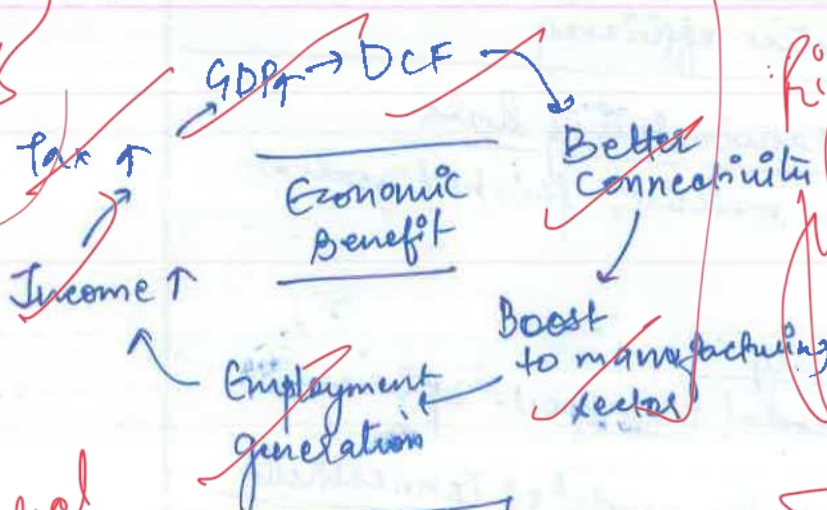 GDP↑ → DCF
Tax ↑
Better
Connectivity
Economic
Benefit
Income ↑
Boost
to manufacturing
sector
Employment
generation